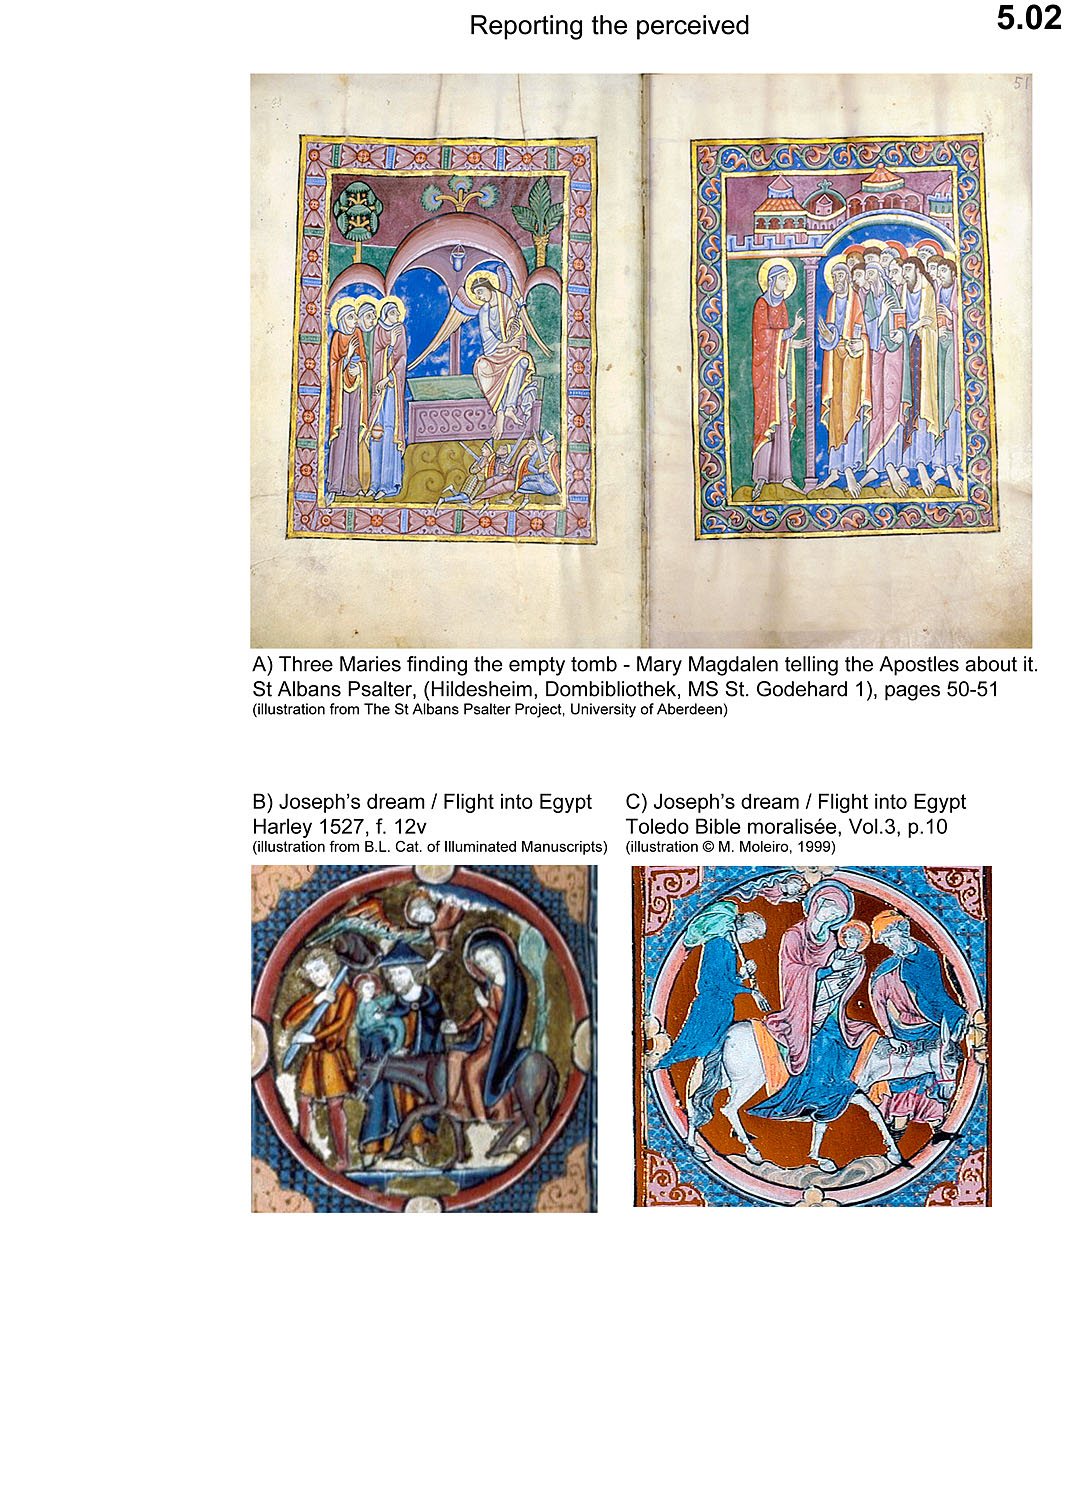 Reporting the perceived
5.02
51
A) Three Maries finding the empty tomb - Mary Magdalen telling the Apostles about it.
St Albans Psalter, (Hildesheim, Dombibliothek, MS St. Godehard 1), pages 50-51
(illustration from The St Albans Psalter Project, University of Aberdeen)
B) Joseph’s dream / Flight into Egypt
Harley 1527, f. 12v
(illustration from B.L. Cat. of Illuminated Manuscripts)
C) Joseph’s dream / Flight into Egypt
Toledo Bible moralisée, Vol.3, p.10
(illustration © M. Moleiro, 1999)